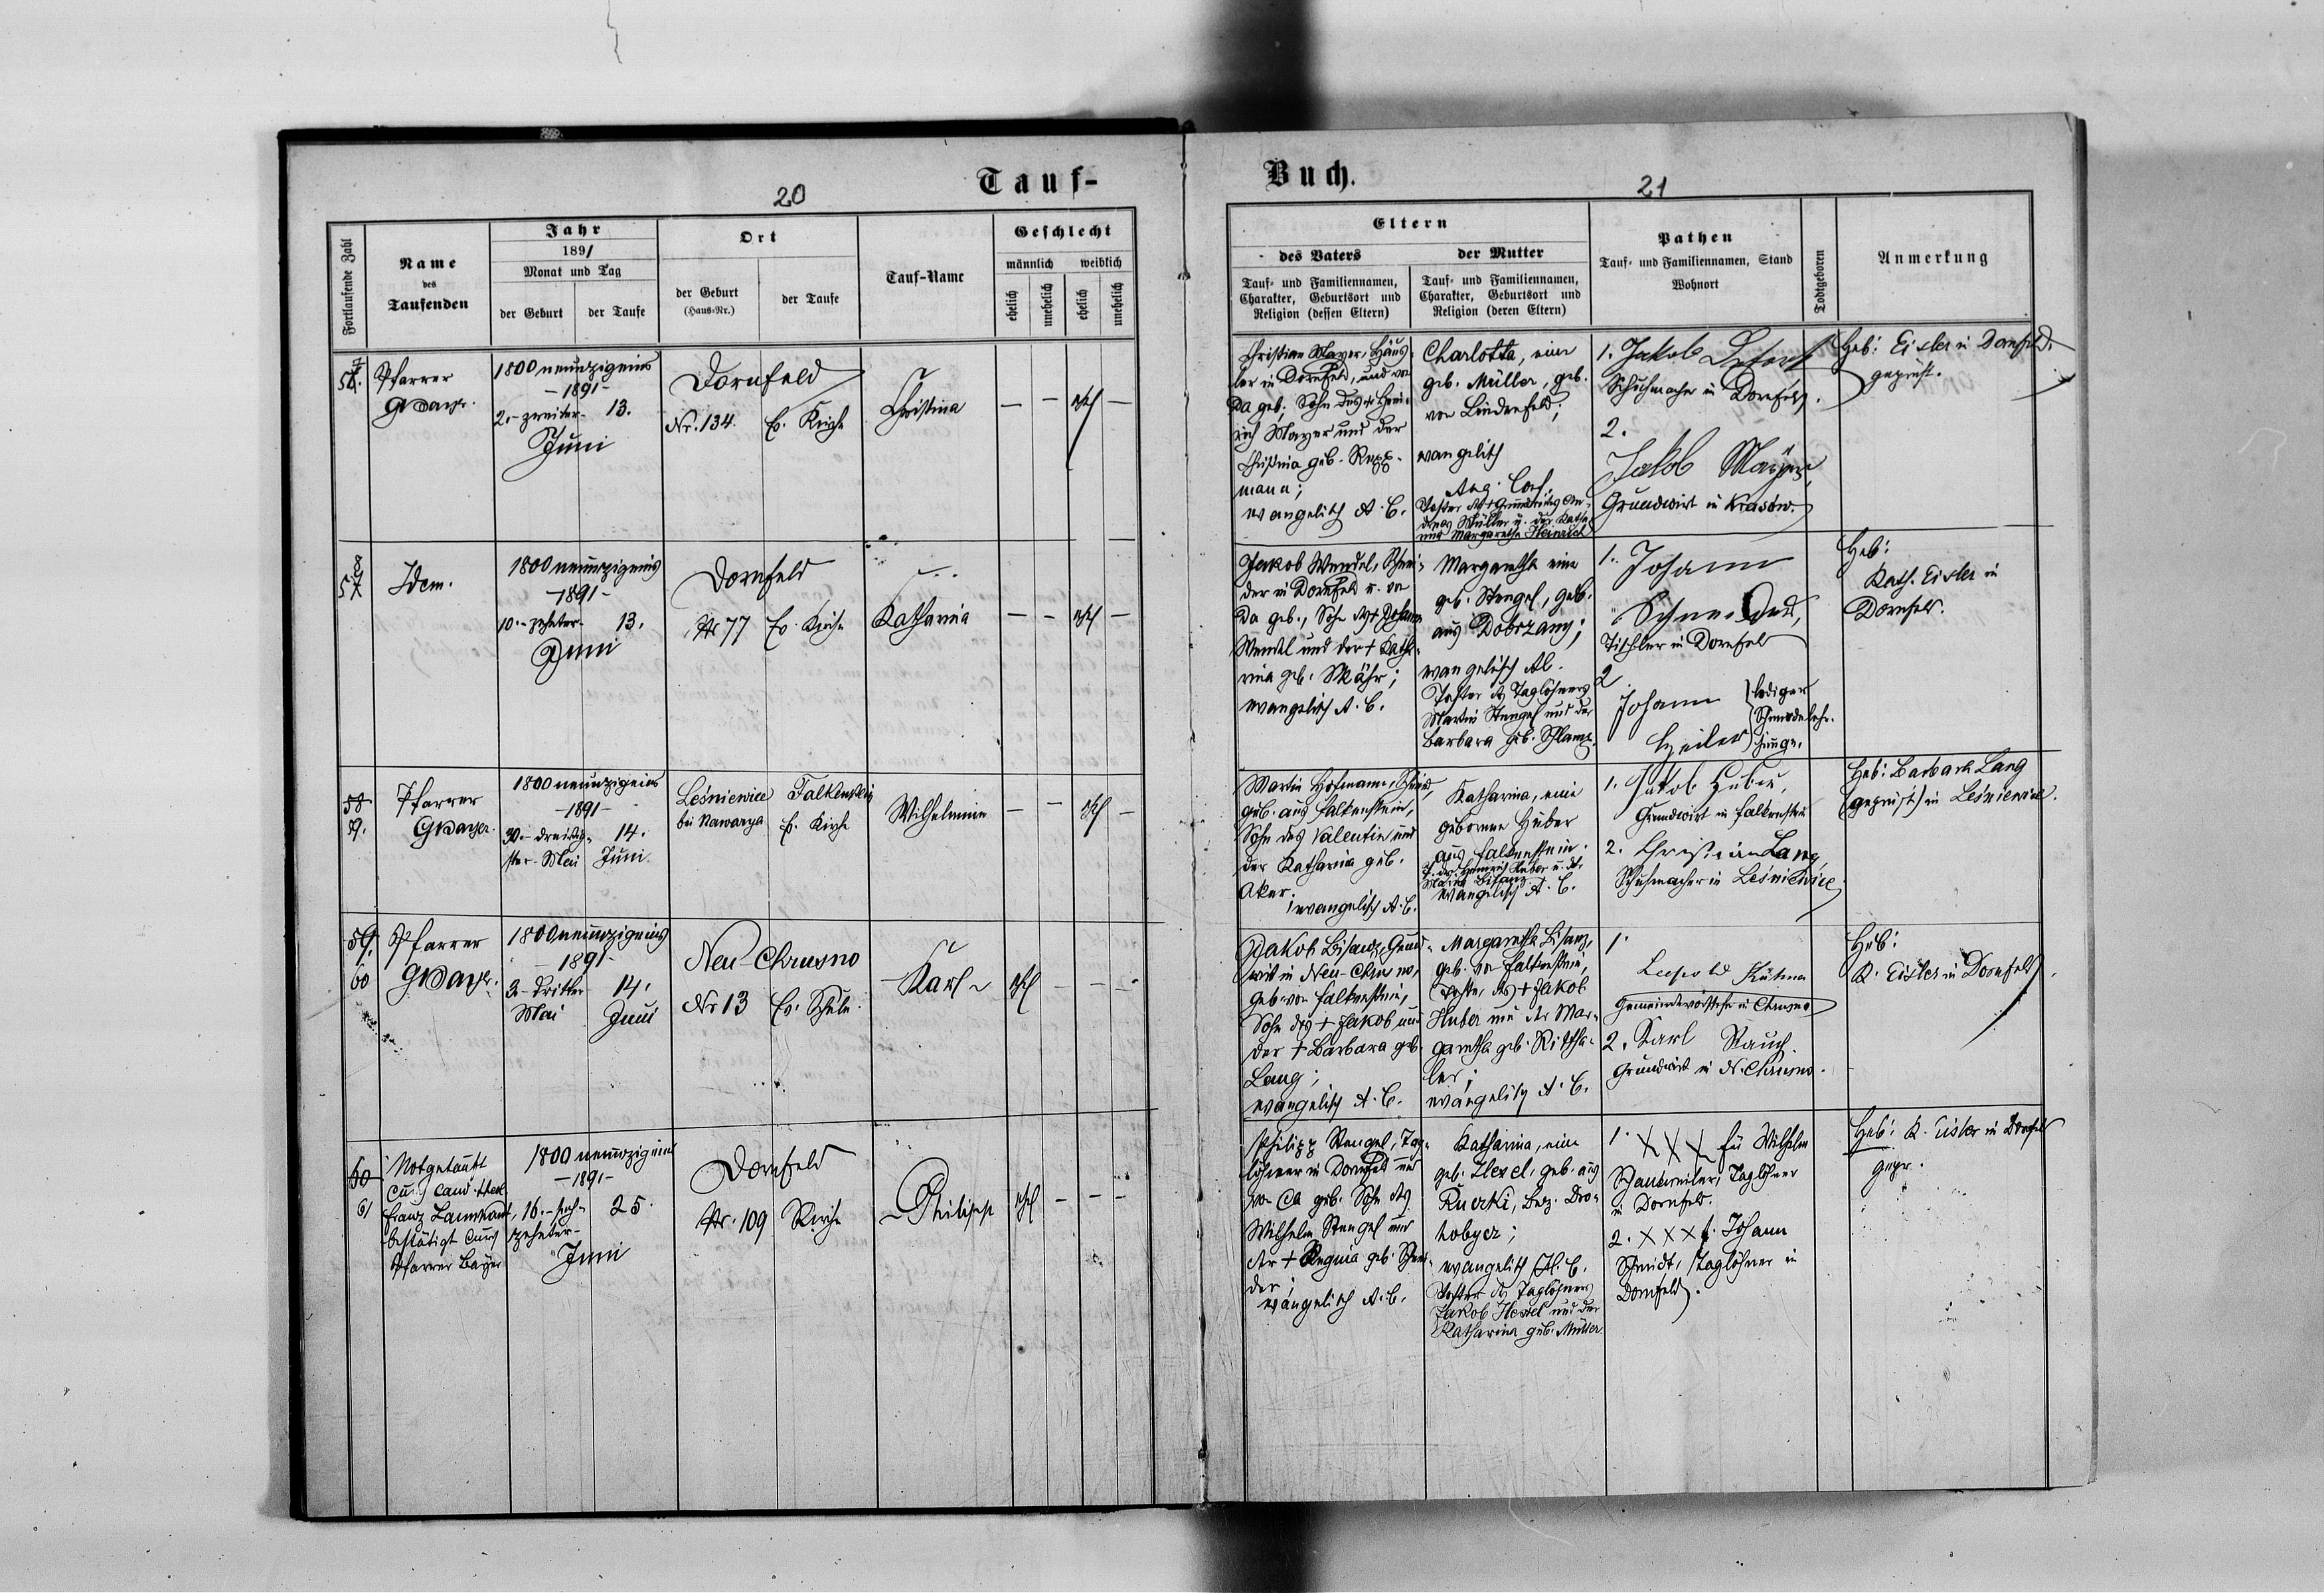 20
Tauf-
Fortlaufende Zahl
Name
des
Taufenden
Jahr
1891
Monat und Tag
der Geburt
der Taufe
Ort
der Geburt
(Haus-Nr.)
der Taufe
Tauf-Name
Geschlecht
männlich
weiblich
ehelich
unehelich
ehelich
unehelich
57
Pfarrer
1800 neunzigeins
-1891-
2.- zweiter- 13.
Juni
Dornfeld
Nr. 134. Ev. Kirche
Christina
58
Idem.
1800 neunzigeins
-1891-
10.- zehnter- 13.
Juni
Dornfeld
Nr 77 Ev. Kirche
Katharina
58
9.
Pfarrer
1800 neunzigeins
-1891-
30.- dreißig- 14.
ster- Mai Juni
Leśniewice Falkenstein
bei Nawarya Ev. Kirche
Wilhelmine
59.
60
Pfarrer
1800 neunzigeins
-1891-
3.- dritter 14.
Mai Juni
Neu-Chrusno
Nr 13 Ev. Schule
Karl
60
61
Notgetauft
durch cand. theol.
Franz
bestätigt durch
Pfarrer Bayer
1800 neunzigeins
-1891-
16.- sech- 25.
zehnter-
Juni
Dornfeld
Nr. 109 Kirche
Philipp
Buch.
21
Eltern
des Vaters
Tauf- und Familiennamen,
Charakter, Geburtsort und
Religion (dessen Eltern)
der Mutter
Tauf- und Familiennamen,
Charakter, Geburtsort und
Religion (deren Eltern)
Pathen
Tauf- und Familiennamen, Stand
Wohnort
Todtgeboren
Anmerkung
Christian Mayer, Häus-
ler in Dornfeld, und von
da geb., Sohn des + Hein-
rich Mayer und der
Christina geb. Rupp-
mann;
evangelisch A. C.
Charlotta, eine
geb. Müller, geb.
von Lindenfeld;
evangelisch
Aug. Conf.
Tochter des + Grundwirtes An-
dreas Müller u. der Katha-
rina Margaretha Heinrich
1. Jakob
Schuhmacher in Dornfeld.
2.
Jakob Mayer,
Grundwirt in Krasow.
Heb: Eisler in Dornfeld.
geprüft.
Jakob Wendel, Schnei-
der in Dornfeld u. von
da geb., Sohn des + Johann
Wendel und der + Katha-
rina geb. Mähr;
evangelisch A. C.
Margaretha eine
geb. Stengel, geb.
aus Dobrzany;
evangelisch A.C.
Tochter des Taglöhners
Martin Stengel und der
Barbara geb. Schlamp.
1. Johann
Schneider,
Tischler in Dornfeld
2
Johann
lediger
Schmiedelehr-
junge.
Heb:
Kath. Eisler in
Dornfeld.
Martin Hofmann, Schmied,
geb. aus Falkenstein,
Sohn des Valentin und
der Katharina geb.
Aker.
evangelisch A. C.
Katharina, eine
geborene Huber
aus Falkenstein.
T. des Heinrich Huber u. der
Maria Bisanz
evangelisch A. C.
1. Jakob Huber,
Grundwirt in Falkenstein
2. Christian Lang,
Schuhmacher in Leśniewice
Heb: Barbara Lang
(geprüft) in Leśniewice.
Jakob Bisanz, Grund-
wirt in Neu-Chrusno,
geb. von Falkenstein,
Sohn des + Jakob und
der + Barbara geb.
Lang;
evangelisch A. C.
Margaretha Bisanz,
geb. von Falkenstein,
Tochter des + Jakob
Huber und der Mar-
garetha geb. Ritttha-
ler;
evangelisch A. C.
1.
Leopold
Gemeindevorsteher in Chrusno
2. Karl Rauch
Grundwirt in N. Chrusno.
Heb:
K. Eisler in Dornfeld.
Philipp Stengel, Tag-
löhner in Dornfeld und
von da geb. Sohn des
Wilhelm Stengel und
der + Regina geb. Schnei-
der;
evangelisch A. C.
Katharina, eine
geb. Hexel, geb. aus
bez. Dro-
hobycz;
evangelisch A. C.
Tochter des Taglöhners
Jakob Hexel und der
Katharina geb. Müller.
1. XXX für Wilhelm
Taglöhner
in Dornfeld.
2. XXX f. Johann
Schmidt, Taglöhner in
Dornfeld.
Heb: K. Eisler in Dornfeld
gepr.